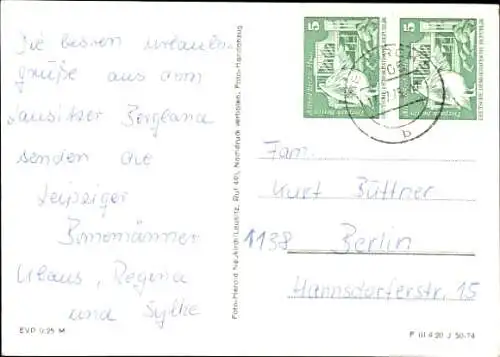 Die besten Urlaubs-
grüße aus dem
Lausitzer Bergland
senden die
Leipziger
Klaus, Regina
und Sylke
EVP 0,25 M
Foto-Herold Neukirch Lausitz, Ruf 401, Nachdruck verboten, Foto-Handabzug
5
5
DEUTSCHE DEMOKRATISCHE REPUBLIK
b
Fam.
Kurt Büttner
1138 Berlin
Hannsdorferstr. 15
P III 4 20 J 50-74